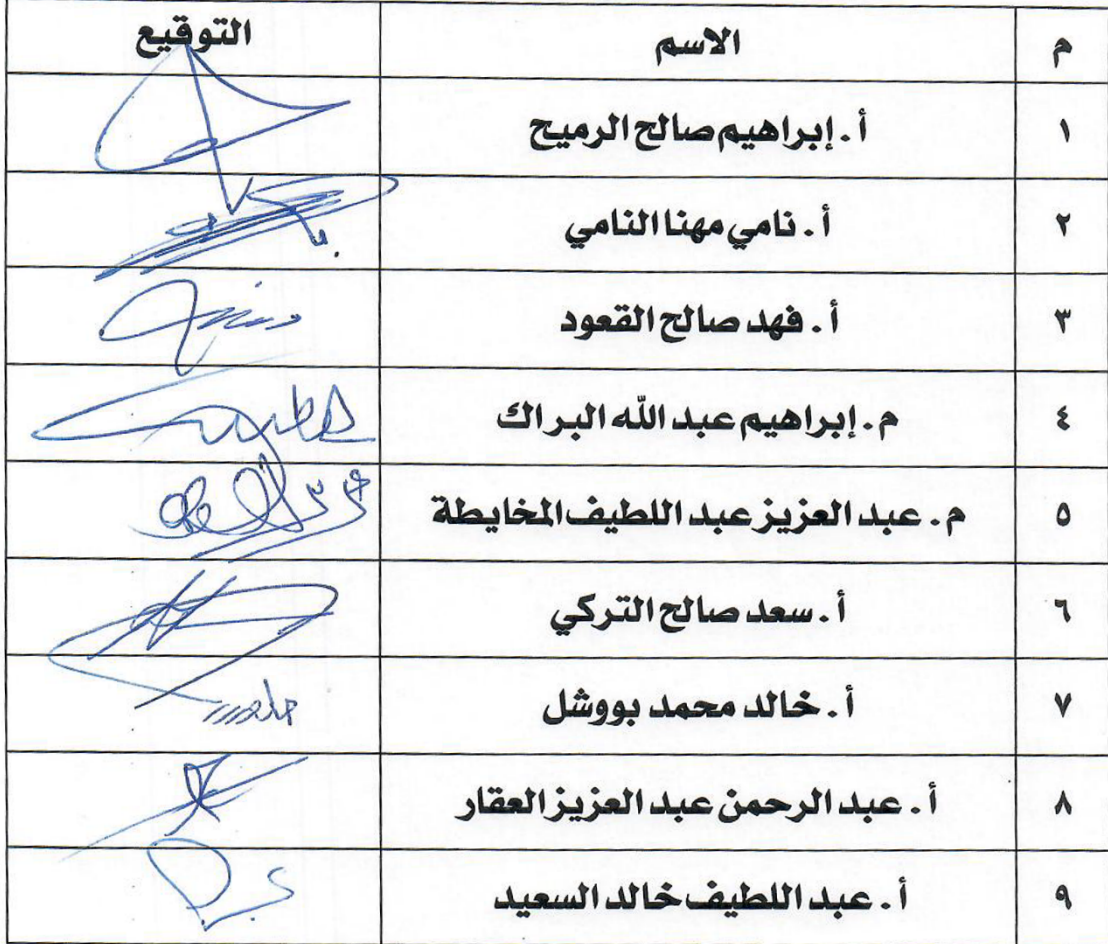 م الاسم التوقيع
١ أ. إبراهيم صالح الرميح
٢ أ. نامي مهنا النامي
٣ أ. فهد صالح القعود
٤ م. إبراهيم عبد الله البراك
٥ م. عبد العزيز عبد اللطيف المخايطة
٦ أ. سعد صالح التركي
٧ أ. خالد محمد بووشل
٨ أ. عبد الرحمن عبد العزيز العقار
٩ أ. عبد اللطيف خالد السعيد